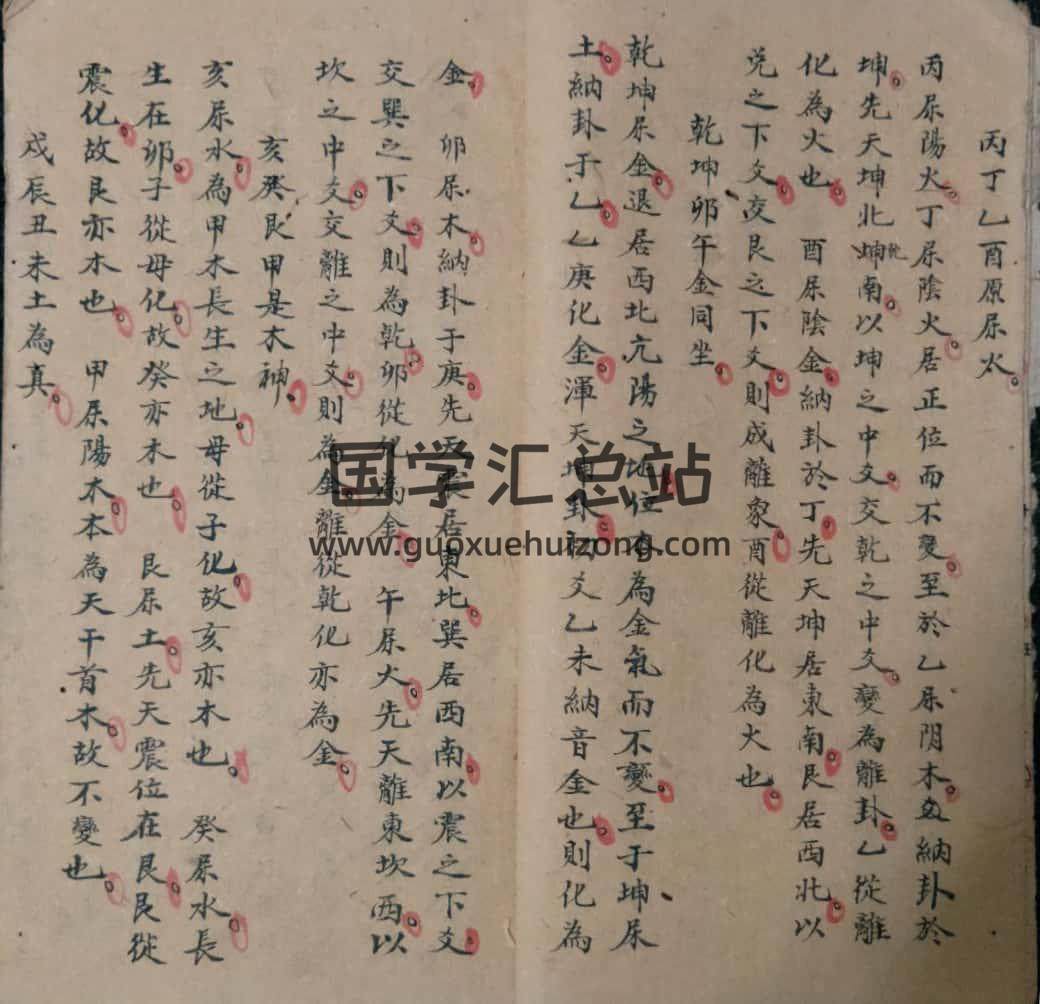 丙丁乙酉原属火。
丙属陽火。丁属陰火。居正位而不變。至於乙属阴木。納卦於
坤。先天坤北坤乾南。以坤之中爻。交乾之中爻。變為離卦。乙從離
化為火也。　酉属陰金。納卦於丁。先天坤居東南。艮居西北。以
兌之下爻。交艮之下爻。則成離象。酉從離化為火也。
乾坤卯午金同坐。
乾坤属金。退居西北亢陽之地。位有為金氣而不變。至于坤属
土。納卦于乙。乙庚化金。渾天坤卦初爻乙未納音金也。則化為
金。　卯属木。納卦于庚。先天震居東北。巽居西南。以震之下爻。
交巽之下爻。則為乾。卯從化為金。　午属火。先天離東坎西。以
坎之中爻。交離之中爻。則為金。離從乾化亦為金。
亥癸艮甲是木神。
亥属水。為甲木長生之地。母從子化。故亥亦木也。　癸属水。長
生在卯。子從母化。故癸亦木也。　艮属土。先天震位在艮。艮從
震化。故艮亦木也。　甲属陽木。本為天干首木。故不變也。
戍辰丑未土為真。
国学汇总站
www.guoxuehuizong.com